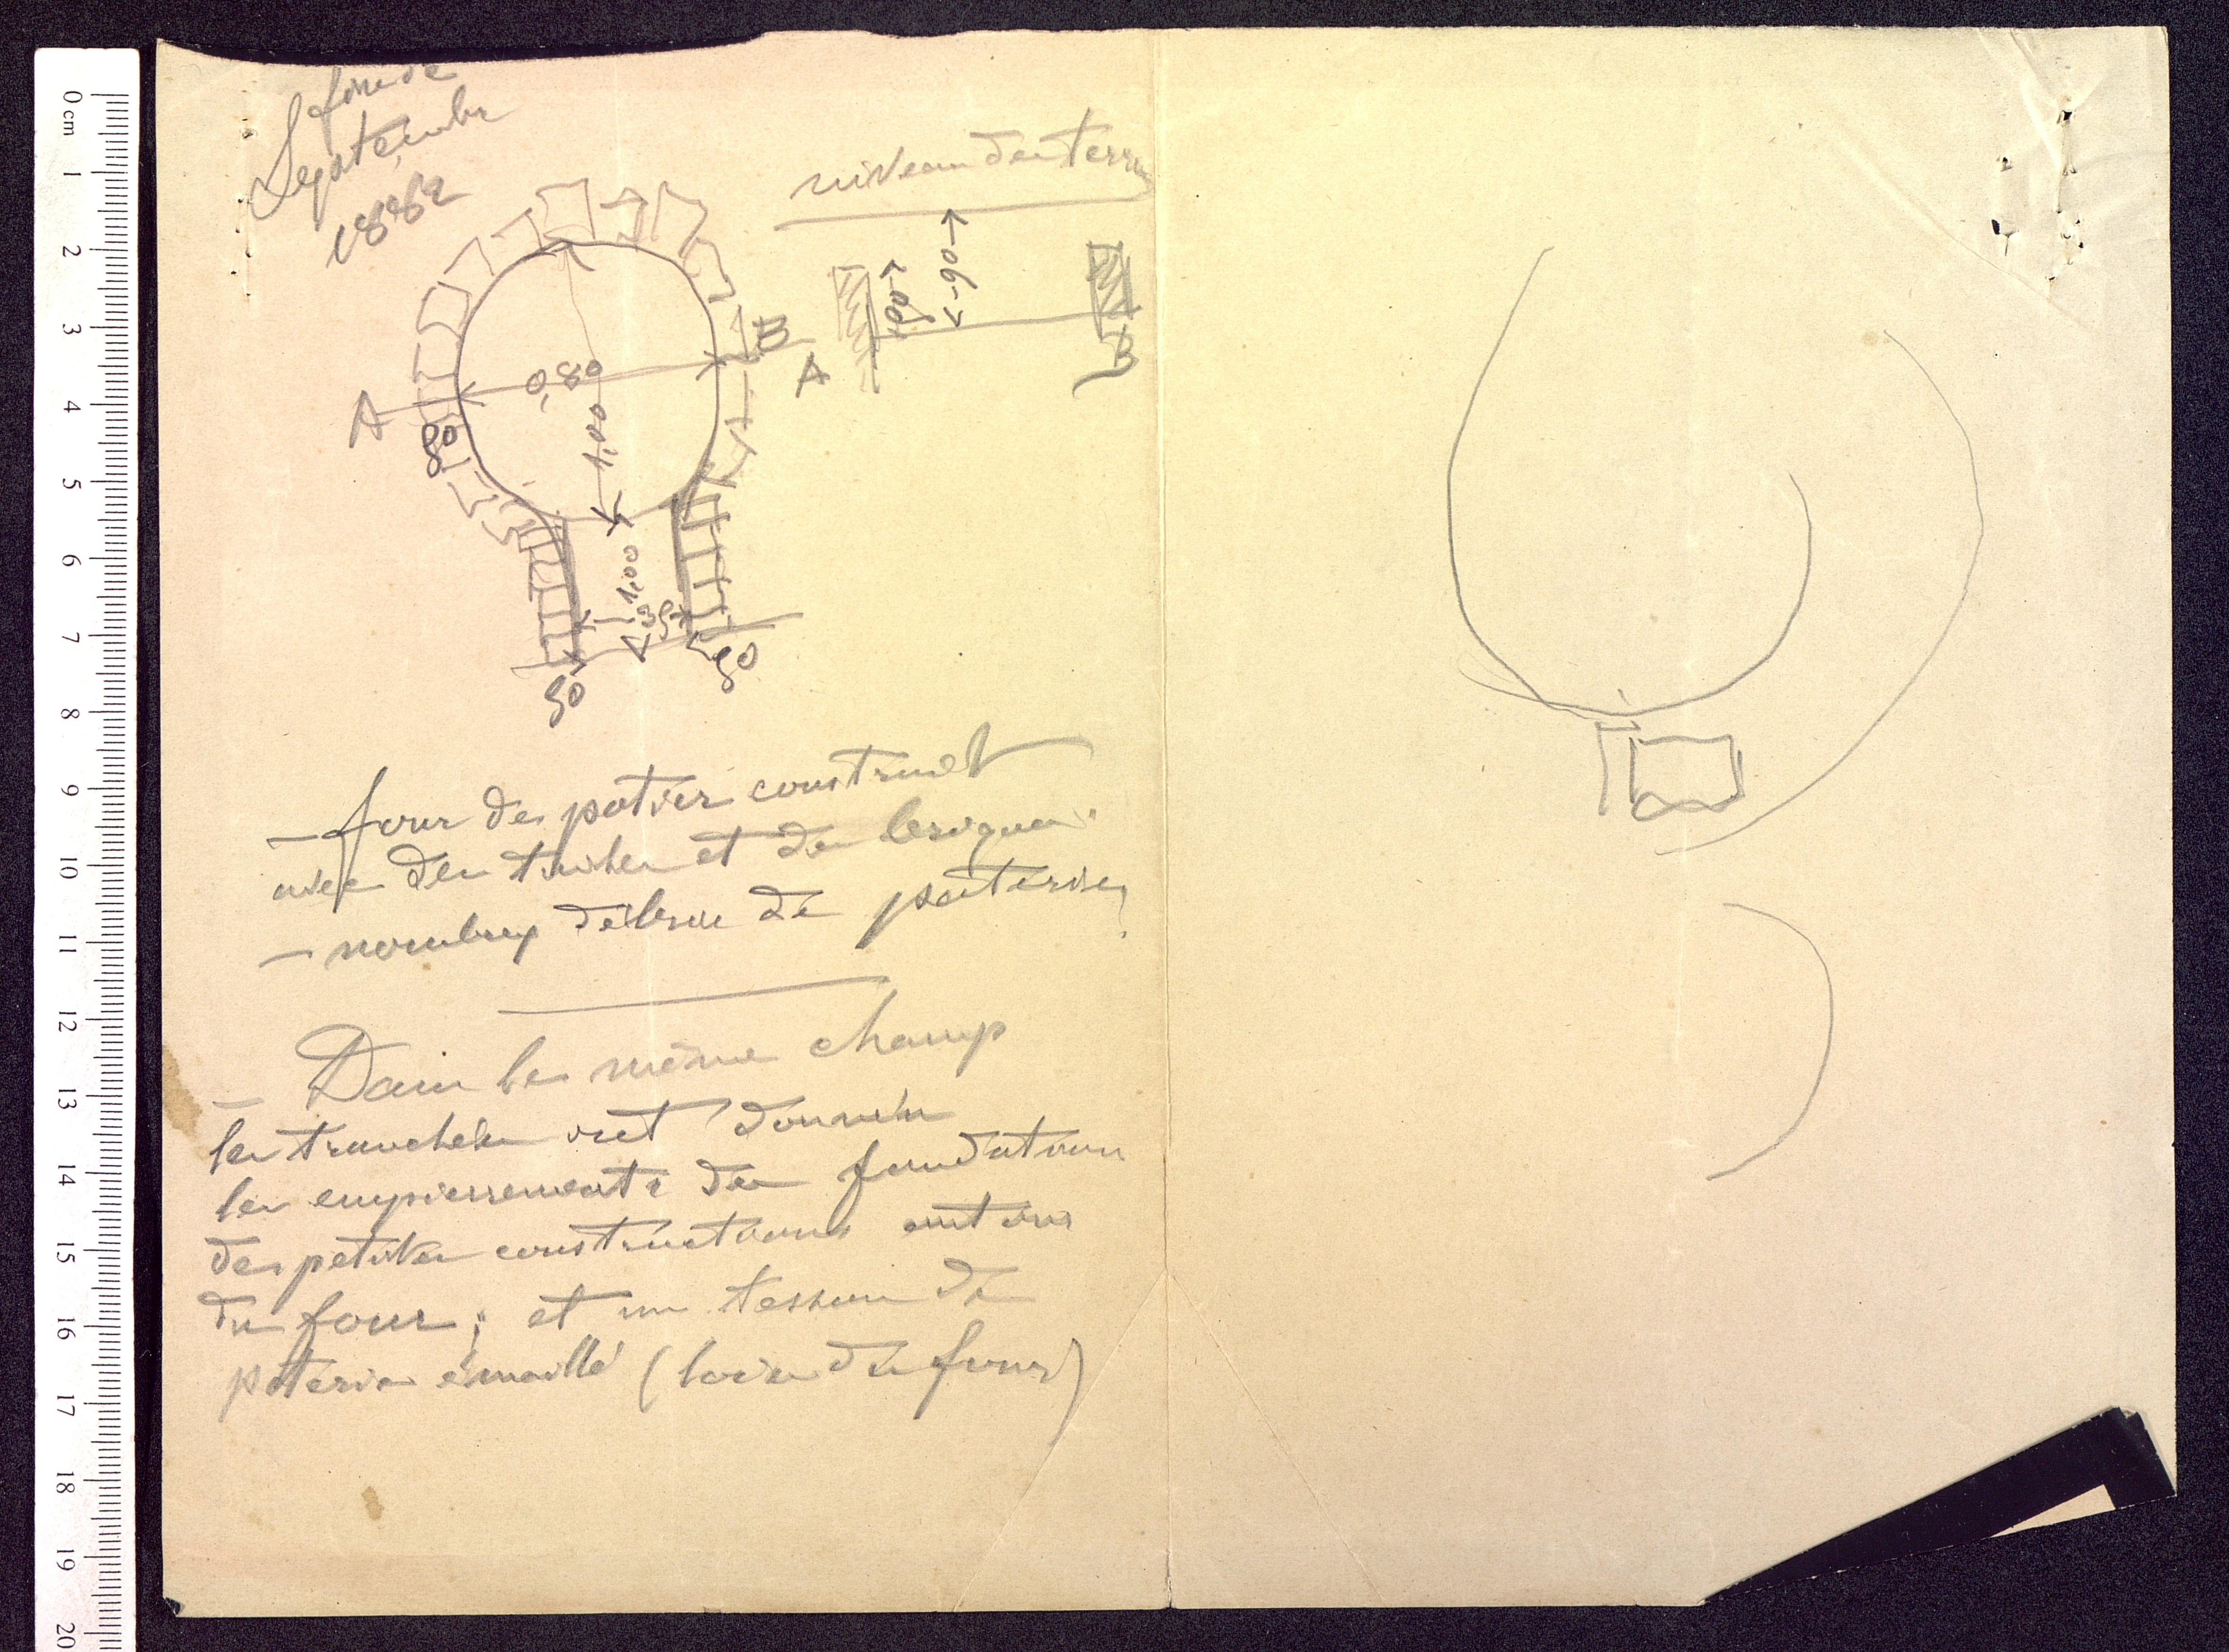 fin de
Septembre
1882
niveau du terrain
90
80
A
B
A
B
0,80
1,00
80
1,00
35
50
50
— four de potier construit
avec des tuiles et des briques.
— nombreux débris de poteries
— Dans le même champ
les tranchées ont données
les empierrements des fondations
des petites constructions autour
du four ; et un tesson de
poterie émaillé (loin du four)
0 cm
1
2
3
4
5
6
7
8
9
10
11
12
13
14
15
16
17
18
19
20